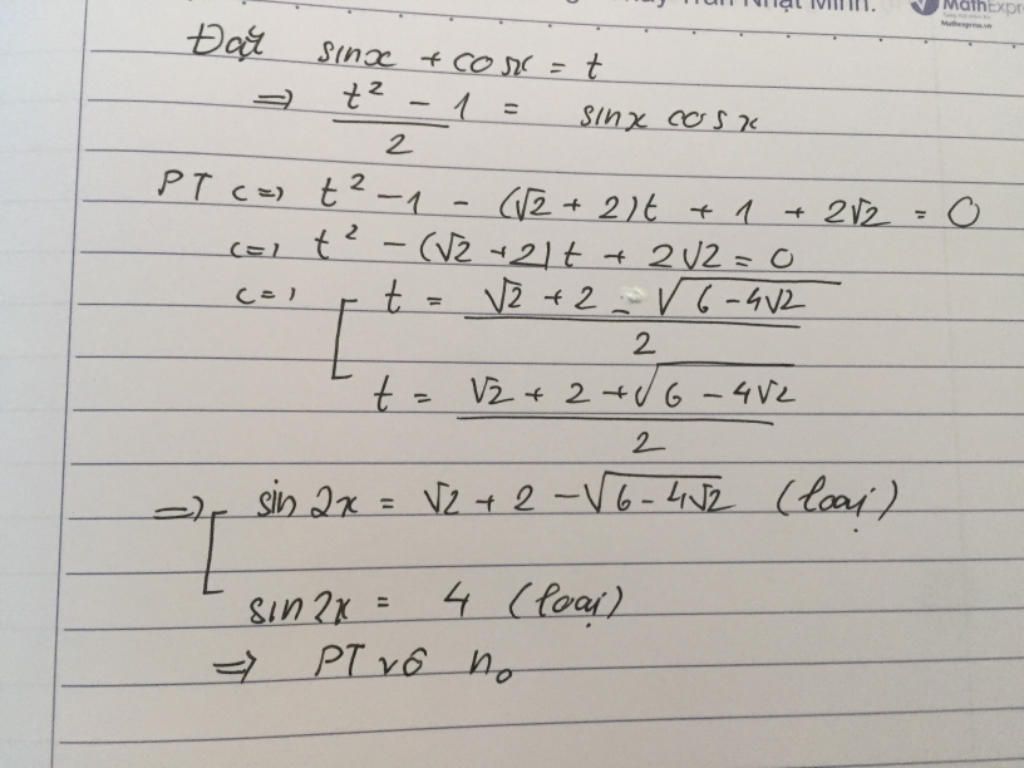 Trần Nhật Minh.
MathExpre
Mathexpress.vn
Đặt sinx + cosx = t
=> (t² - 1)/2 = sinx cosx
PT <=> t² - 1 - (√2 + 2)t + 1 + 2√2 = 0
<=> t² - (√2 + 2)t + 2√2 = 0
<=> [ t = (√2 + 2 - √(6 - 4√2))/2
t = (√2 + 2 + √(6 - 4√2))/2
=> [ sin2x = √2 + 2 - √(6 - 4√2) (loại)
sin2x = 4 (loại)
=> PT vô n₀